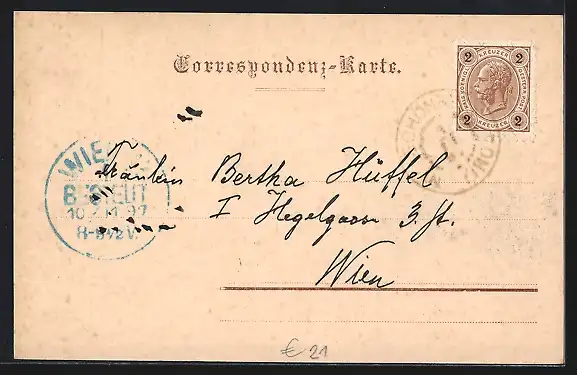 Correspondenz-Karte.
2 KREUZER 2
2 KREUZER 2
WIEN
BESTELLT
97
8-9½V.
Fräulein Bertha Hüffel
I Hegelgasse 3. St.
Wien
€ 21